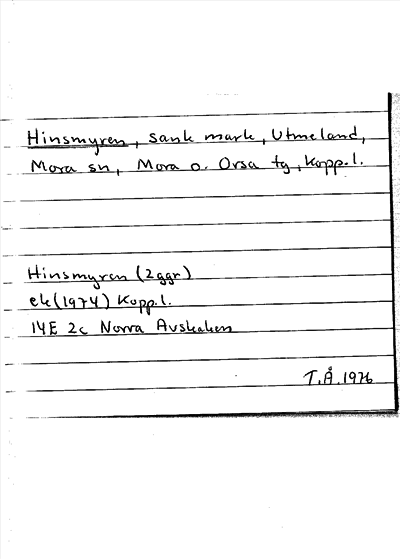 Hinsmyren, sank mark, Utmeland,
Mora sn, Mora o. Orsa tg, Kopp.l.
Hinsmyren (2ggr)
ek (1974) Kopp.l.
14E 2c Norra Avskaken
T.Å. 1976